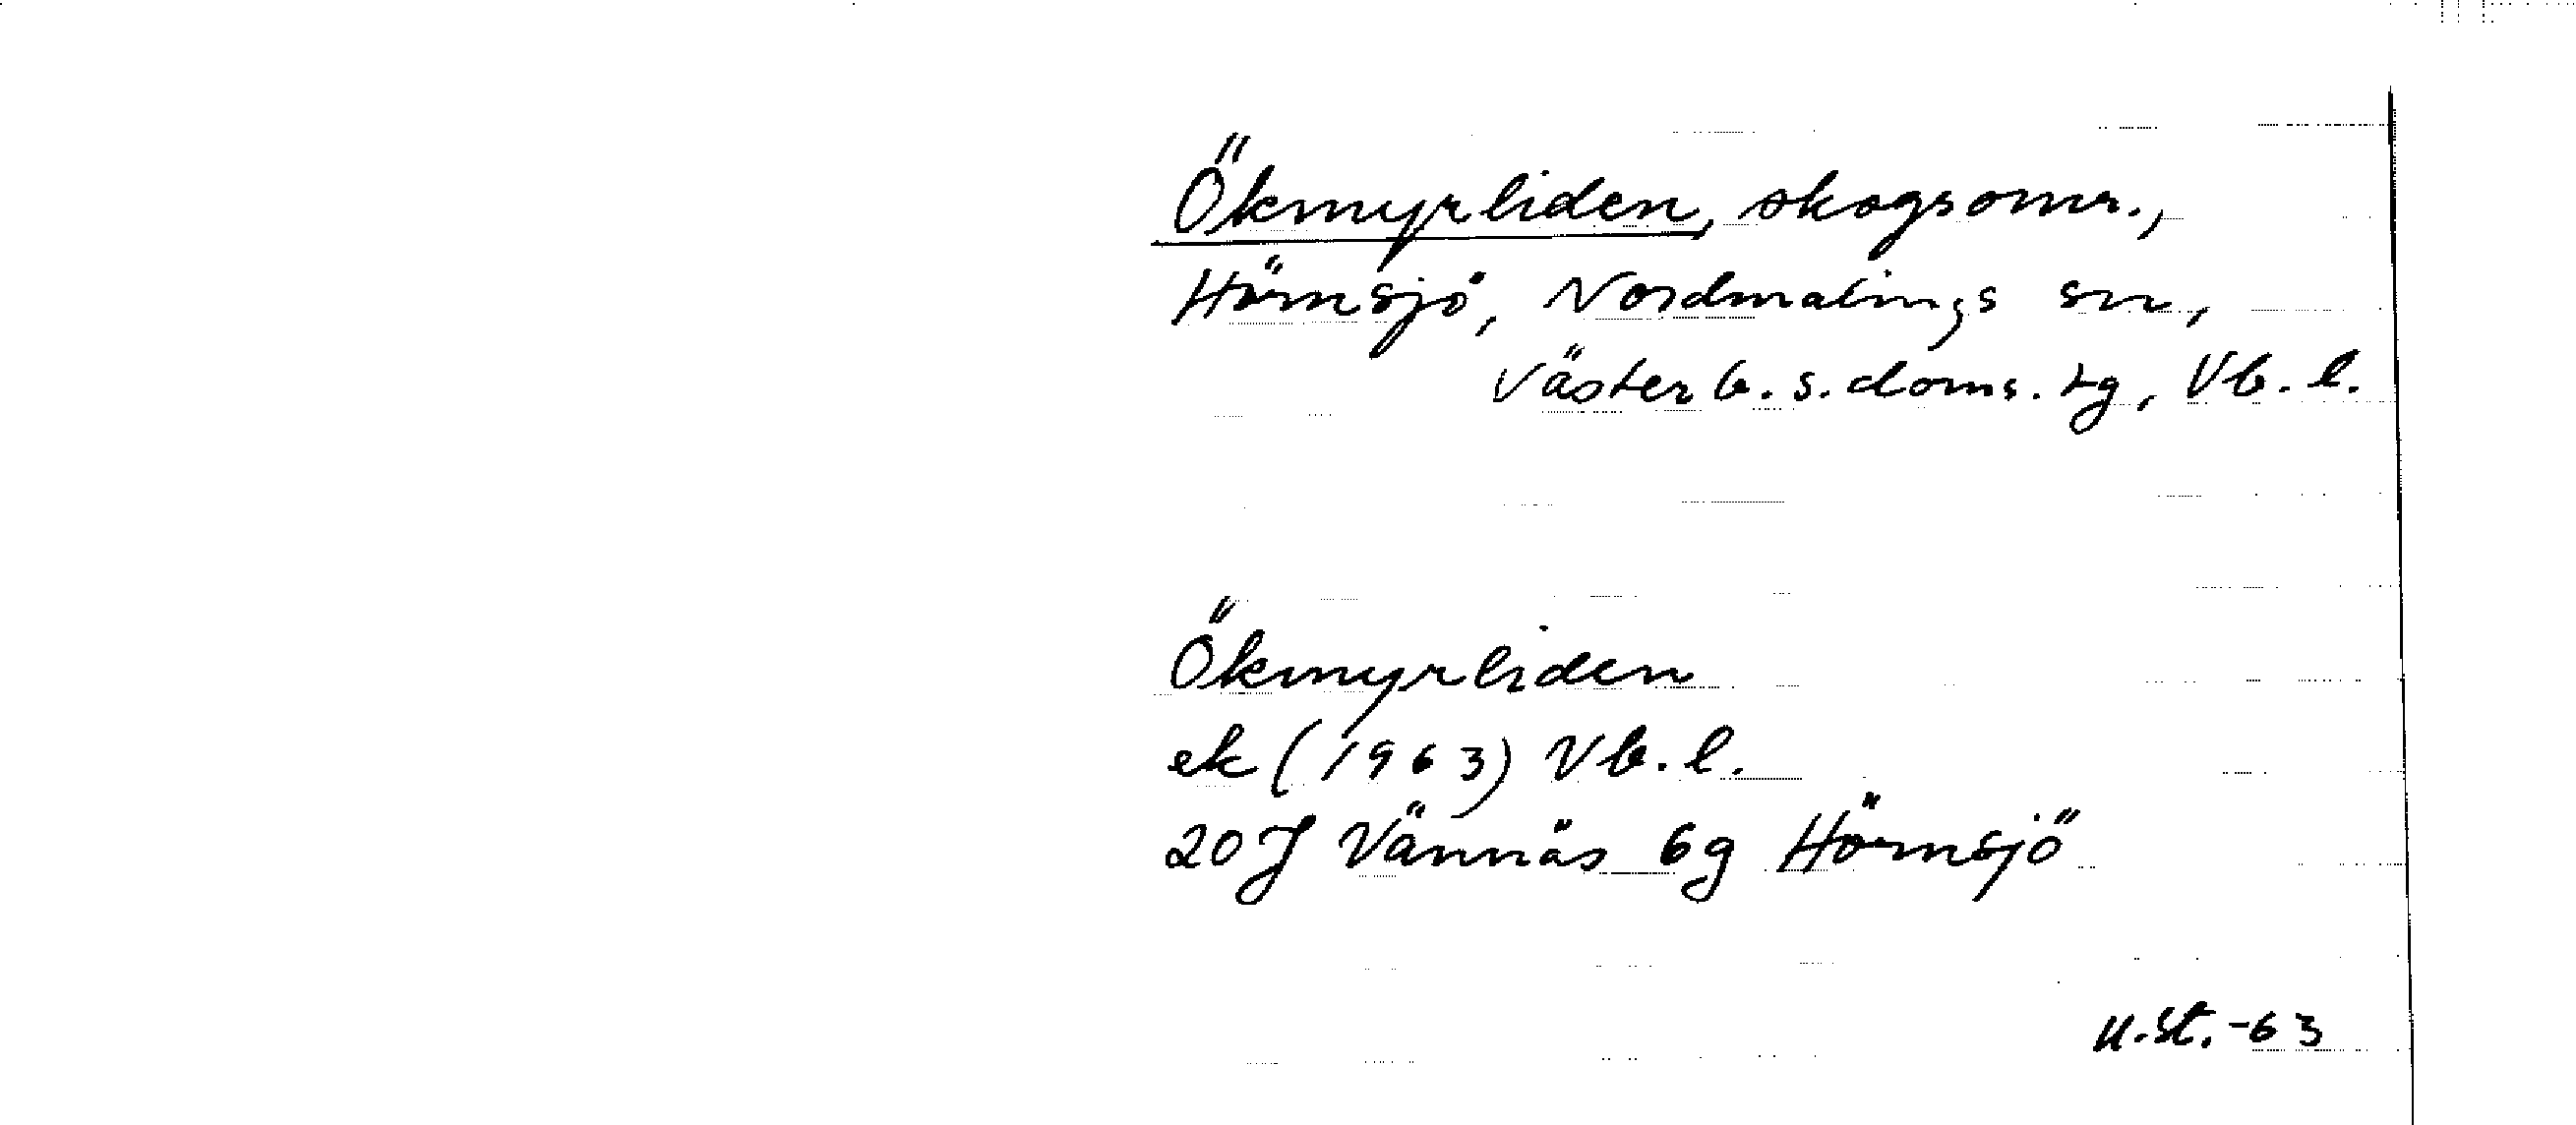 Ökmyrliden, skogsomr.,
Hörnsjö, Nordmalings sn,
Västerb. s. doms. tg, Vb. l.
Ökmyrliden
ek (1963) Vb. l.
20 J Vännäs 6g Hörnsjö
U.St. -63